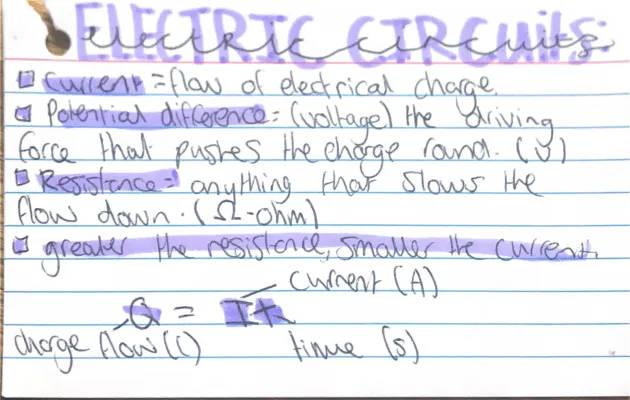 ELECTRIC CIRCUITS:
electric circuits.
□ Current = flow of electrical charge.
□ Potential difference = (voltage) the driving
force that pushes the charge round. (V)
□ Resistance = anything that slows the
flow down. (Ω - ohm)
□ greater the resistance, smaller the current.
current (A)
Q = It
charge flow (C) time (s)